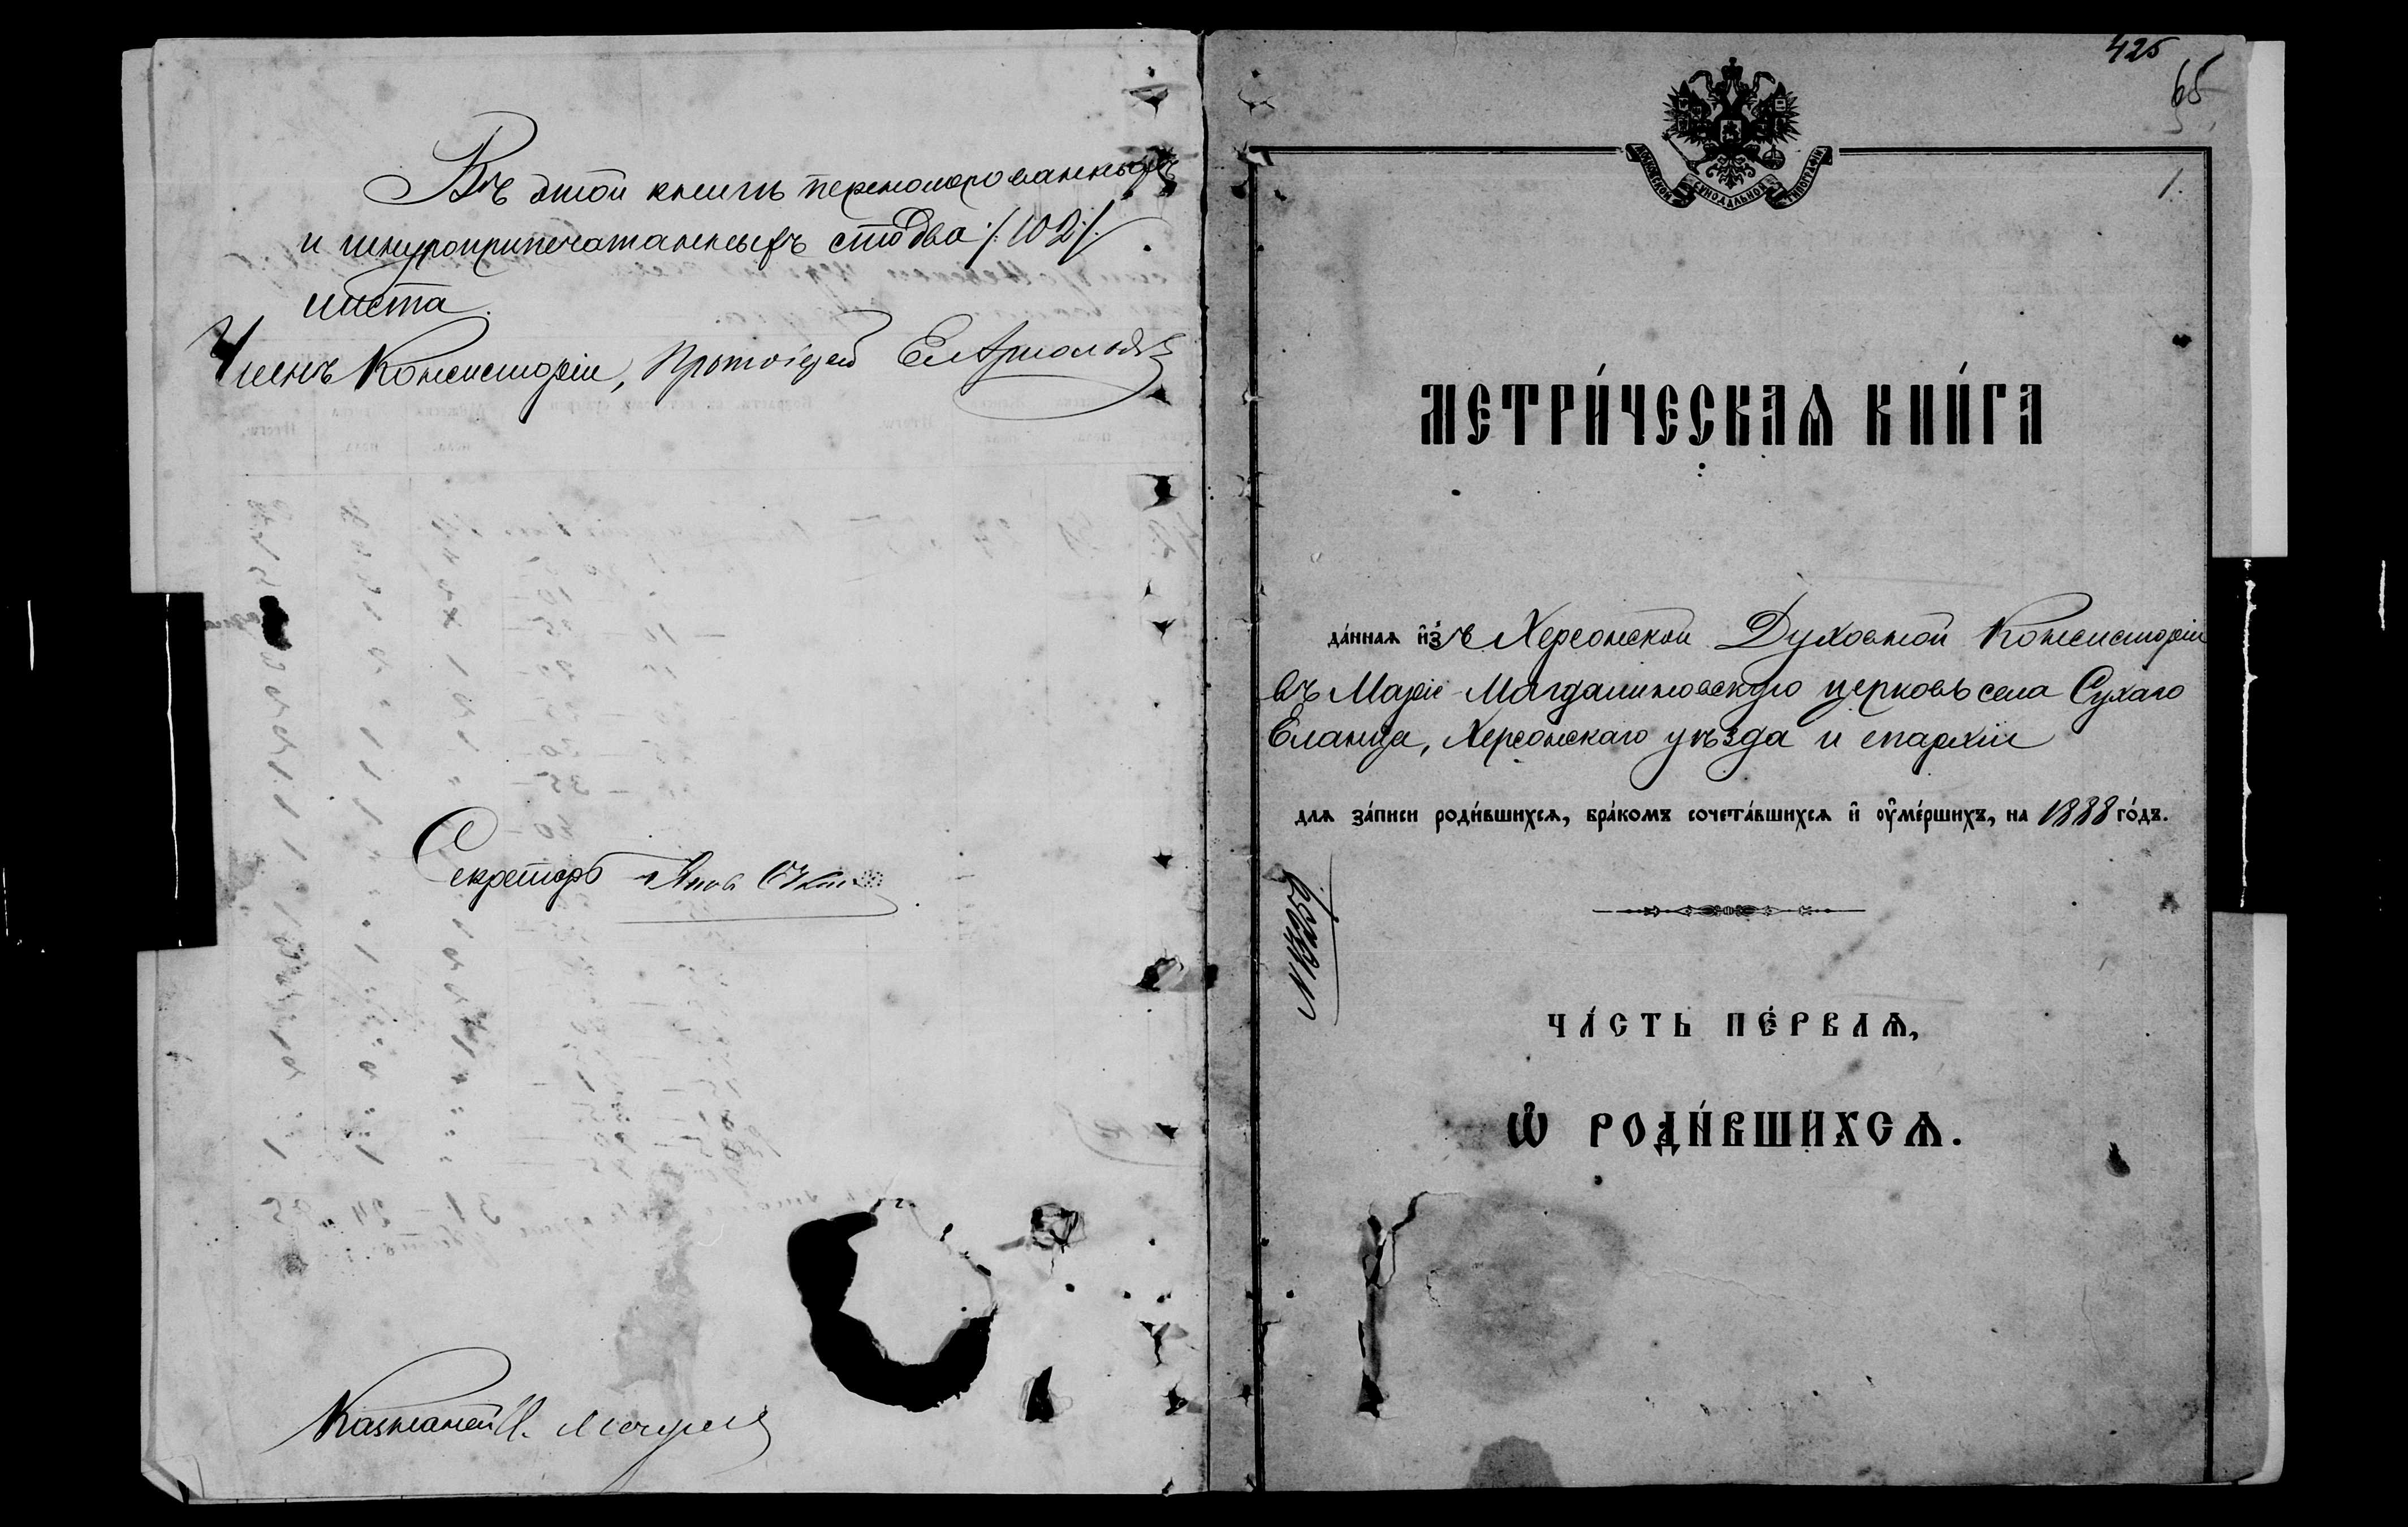 Въ этой книгѣ перномерованныхъ
и шнуроприпечатанныхъ сто два /:102:/
листа.
Членъ Консисторіи, Протоіерей
Секретарь
Казначей
425
65
1.
МОСКОВСКОЙ СѴНОДАЛЬНОЙ ТИПОГРАФІИ
МЕТРИ́ЧЕСКАѦ КНИ́ГА
да́ннаѧ и҆з̾ Херсонской Духовной Консисторіи
въ Маріе-Магдалиновскую церковь села Сухаго
Еланца, Херсонскаго уѣзда и епархіи
для за́писи роди́вшихсѧ, бра́комъ сочета́вшихсѧ и҆ ᲂу҆ме́ршихъ, на 1888 го́дъ.
ЧА́СТЬ ПЕ́РВАѦ,
Ѽ РОДИ́ВШИХСѦ.